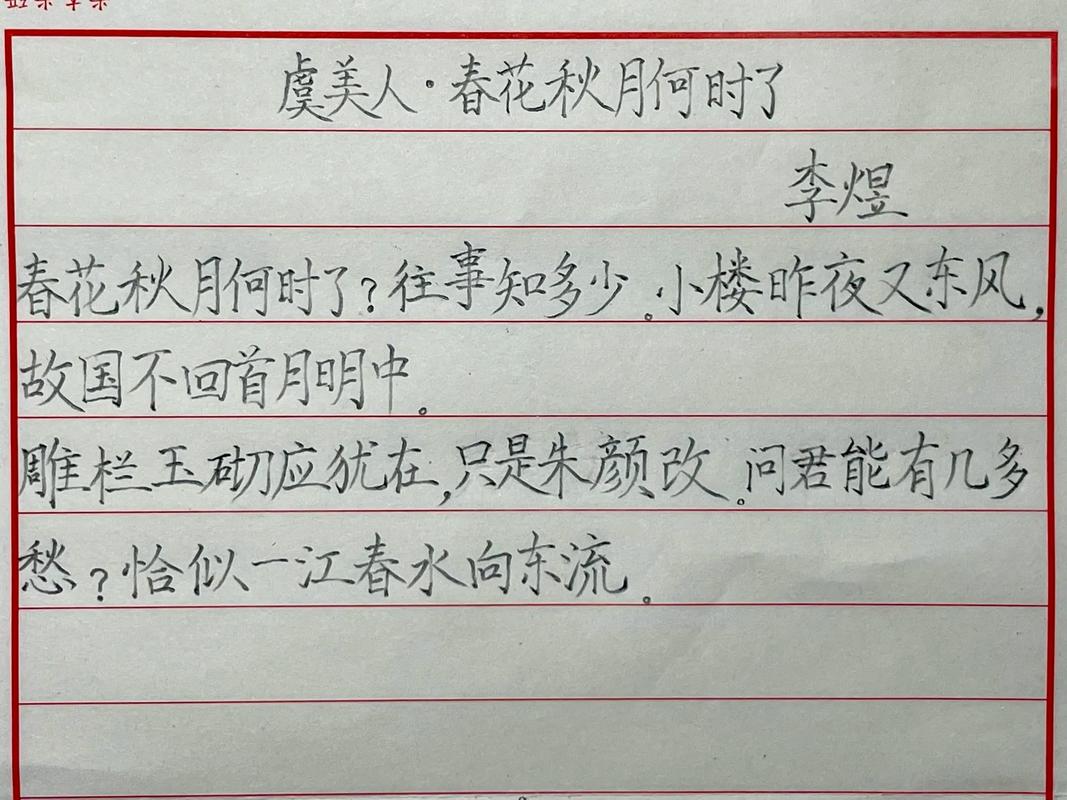 虞美人·春花秋月何时了
李煜
春花秋月何时了?往事知多少。小楼昨夜又东风,
故国不回首月明中。
雕栏玉砌应犹在,只是朱颜改。问君能有几多
愁?恰似一江春水向东流。